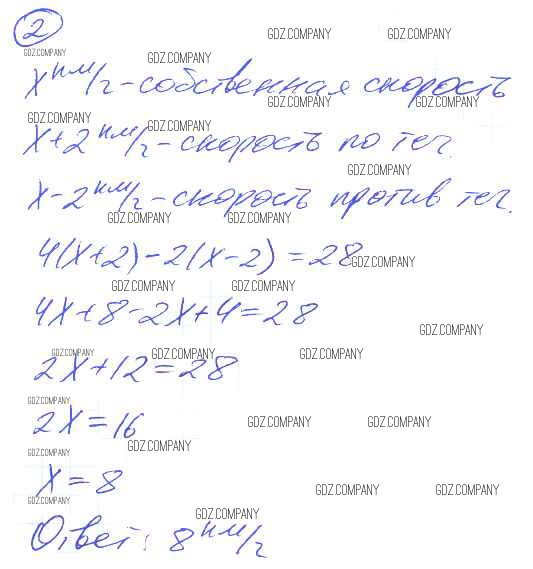 2
GDZ.COMPANY GDZ.COMPANY
GDZ.COMPANY GDZ.COMPANY
x км/г - собственная скорость
GDZ.COMPANY GDZ.COMPANY
GDZ.COMPANY GDZ.COMPANY
x+2 км/г - скорость по теч.
GDZ.COMPANY
x-2 км/г - скорость против теч.
GDZ.COMPANY GDZ.COMPANY
4(x+2)-2(x-2)=28
GDZ.COMPANY
GDZ.COMPANY GDZ.COMPANY
4x+8-2x+4=28
GDZ.COMPANY
GDZ.COMPANY GDZ.COMPANY GDZ.COMPANY
2x+12=28
GDZ.COMPANY
2x=16
GDZ.COMPANY GDZ.COMPANY
GDZ.COMPANY GDZ.COMPANY
x=8
GDZ.COMPANY GDZ.COMPANY GDZ.COMPANY
GDZ.COMPANY
Ответ: 8 км/г